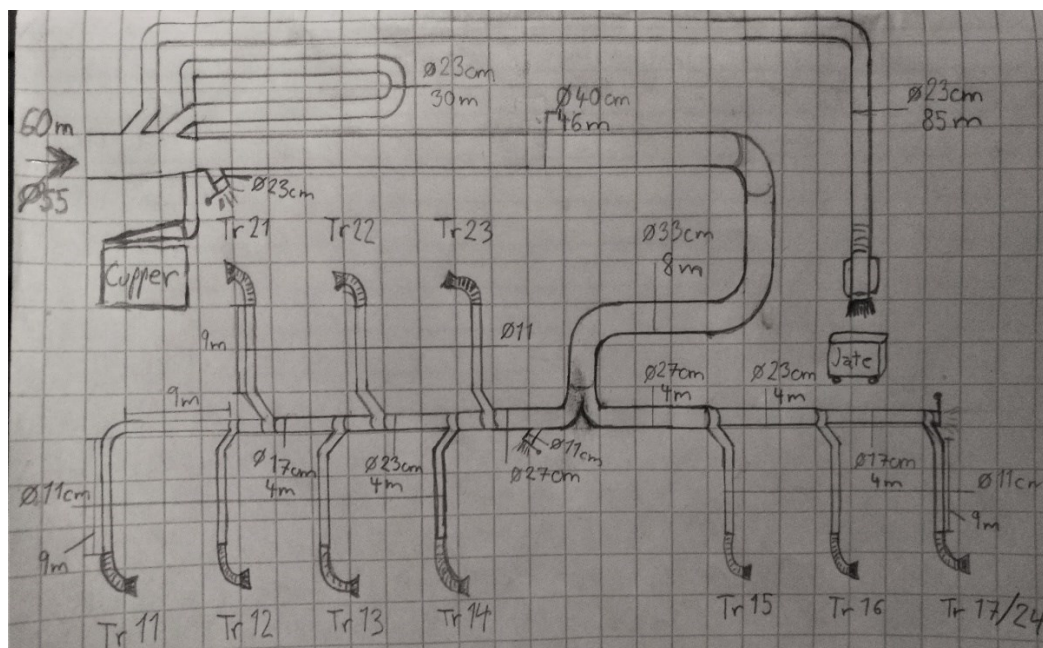 Ø23cm
30m
Ø40cm
46m
Ø23cm
85m
60m
Ø55
Ø23cm
Tr 21
Tr 22
Tr 23
Ø33cm
8m
Cupper
9m
Ø11
Jate
9m
Ø27cm
4m
Ø23cm
4m
Ø17cm
4m
Ø23cm
4m
Ø11cm
Ø27cm
Ø17cm
4m
Ø11cm
Ø11cm
9m
9m
Tr 11
Tr 12
Tr 13
Tr 14
Tr 15
Tr 16
Tr 17/24